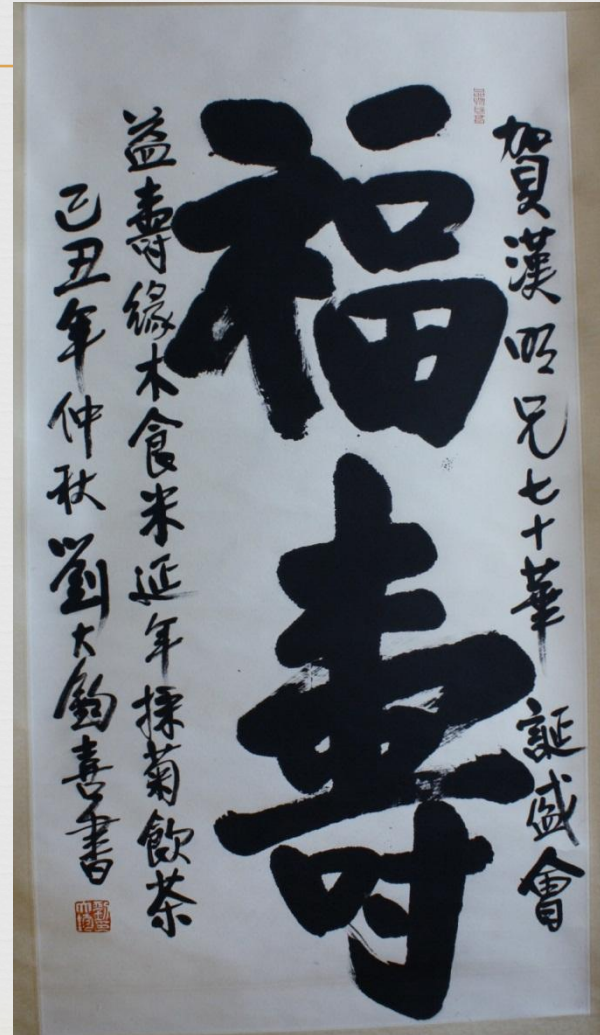 賀漢明兄七十華誕盛會
福壽
益壽緣木食米延年採菊飲茶
己丑年仲秋劉大鈞喜書